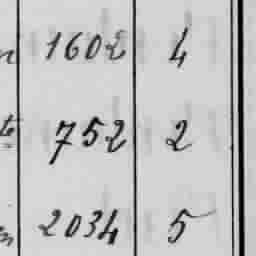 1602 4
752 2
2034 5